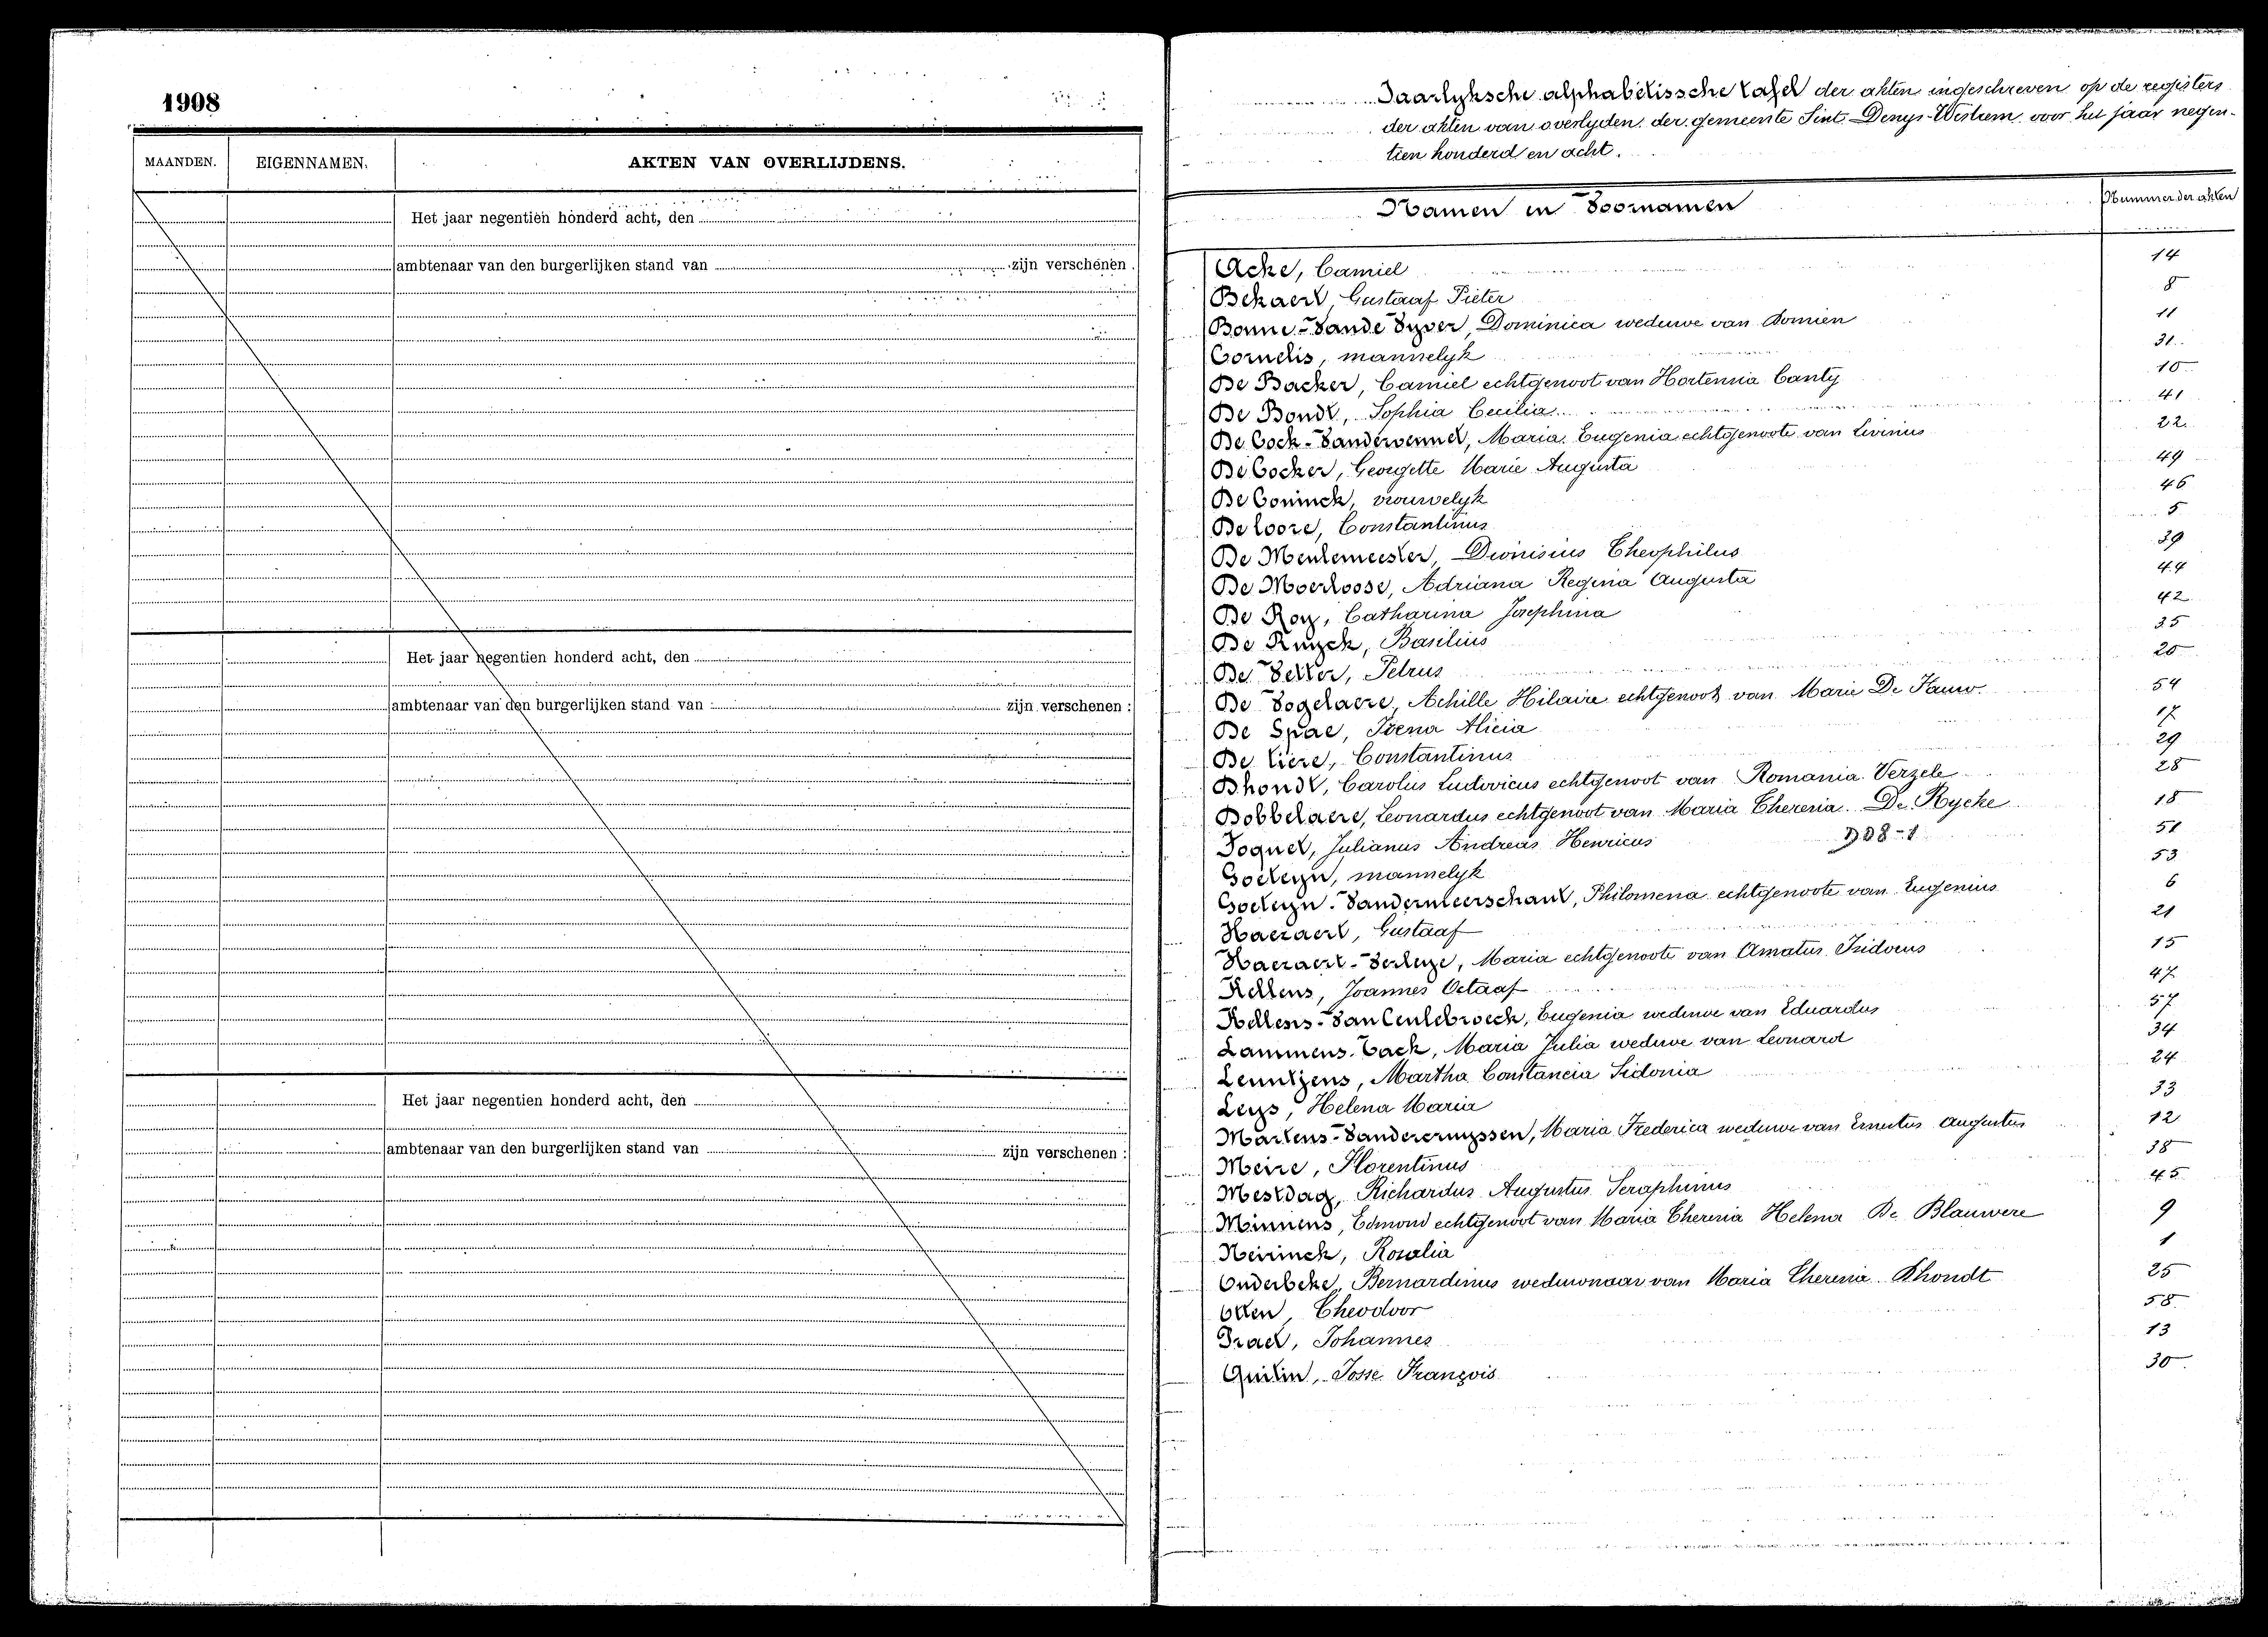 1908
MAANDEN. EIGENNAMEN. AKTEN VAN OVERLIJDENS.
Het jaar negentien honderd acht, den
ambtenaar van den burgerlijken stand van zijn verschenen
Het jaar negentien honderd acht, den
ambtenaar van den burgerlijken stand van : zijn verschenen :
Het jaar negentien honderd acht, den
ambtenaar van den burgerlijken stand van zijn verschenen :
Jaarlyksche alphabetissche tafel der akten ingeschreven op de registers
der akten van overlyden der gemeente Sint-Denys-Westrem voor het jaar negen-
tien honderd en acht.
Namen en Voornamen Nummer der akten
Acke, Camiel 14
Bekaert, Gustaaf Pieter 8
Bonne-Vande Vyver, Dominica weduwe van Domien 11
Cornelis, mannelyk 31
De Backer, Camiel echtgenoot van Hortensia Canty 10
De Bondt, Sophia Cecilia 41
De Cock-Vandervennet, Maria Eugenia echtgenoote van Livinus 22
De Cocker, Georgette Marie Augusta 49
De Coninck, vrouwelyk 46
De Loore, Constantinus 5
De Meulemeester, Dionisius Theophilus 39
De Moerloose, Adriana Regina Augusta 44
De Roy, Catharina Josephina 42
De Ruyck, Basilius 35
De Vetter, Petrus 20
De Vogelaere, Achille Hilaire echtgenoot van Marie De Pauw 54
De Spae, Irena Alicia 17
De Tiere, Constantinus 29
Dhondt, Carolus Ludovicus echtgenoot van Romania Verzele 28
Dobbelaere, Leonardus echtgenoot van Maria Theresia De Rycke 18
Foquet, Julianus Andreas Henricus 908-1 51
Goeteyn, mannelyk 53
Goeteyn-Vandermeerschaut, Philomena echtgenoote van Eugenius 6
Haeraert, Gustaaf 21
Haeraert-Verleye, Maria echtgenoote van Amatus Isidorus 15
Kellens, Joannes Octaaf 47
Kellens-Van Ceulebroeck, Eugenia weduwe van Eduardus 57
Lammens-Tack, Maria Julia weduwe van Leonard 34
Lenntjens, Martha Constancia Sidonia 24
Leys, Helena Maria 33
Martens-Vandercruyssen, Maria Frederica weduwe van Ernestus Augustus 12
Meire, Florentinus 38
Mestdag, Richardus Augustus Seraphinus 45
Minnens, Edmond echtgenoot van Maria Theresia Helena De Blauwere 9
Neirinck, Rosalia 1
Onderbeke, Bernardinus weduwnaar van Maria Theresia Dhondt 25
Otten, Theodoor 58
Prael, Johannes 13
Quitin, Josse François 30